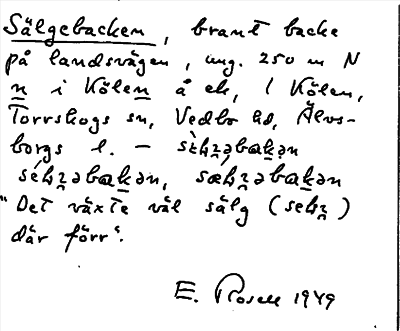 Sälgebacken, brant backe
på landsvägen, ung. 250 m N
n i Kölen å ek, 1 Kölen,
Torrskogs sn, Vedbo hd, Älvs-
borgs l. –
"Det växte väl sälg
där förr".
E. Rosell 1949